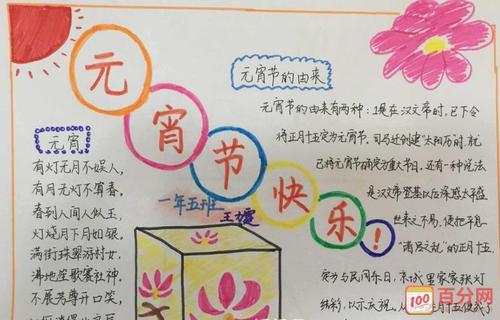 元宵节快乐!
一年五班
元宵
有灯无月不娱人,
有月无灯不算春。
春到人间人似玉,
灯烧月下月如银。
满街珠翠游村女,
沸地笙歌赛社神。
不展芳尊开口笑,
元宵节的由来
元宵节的由来有两种:1是在汉文帝时,已下令
将正月十五定为元宵节。司马迁创建"太阳历"时,就
已将元宵节确定为重大节日。还有一种说法
是汉文帝登基以后深感太平盛
世来之不易,便把平息
"诸吕之乱"的正月十五
定为与民同乐日,京城里家家张灯
结彩,以示庆祝。
100 百分网